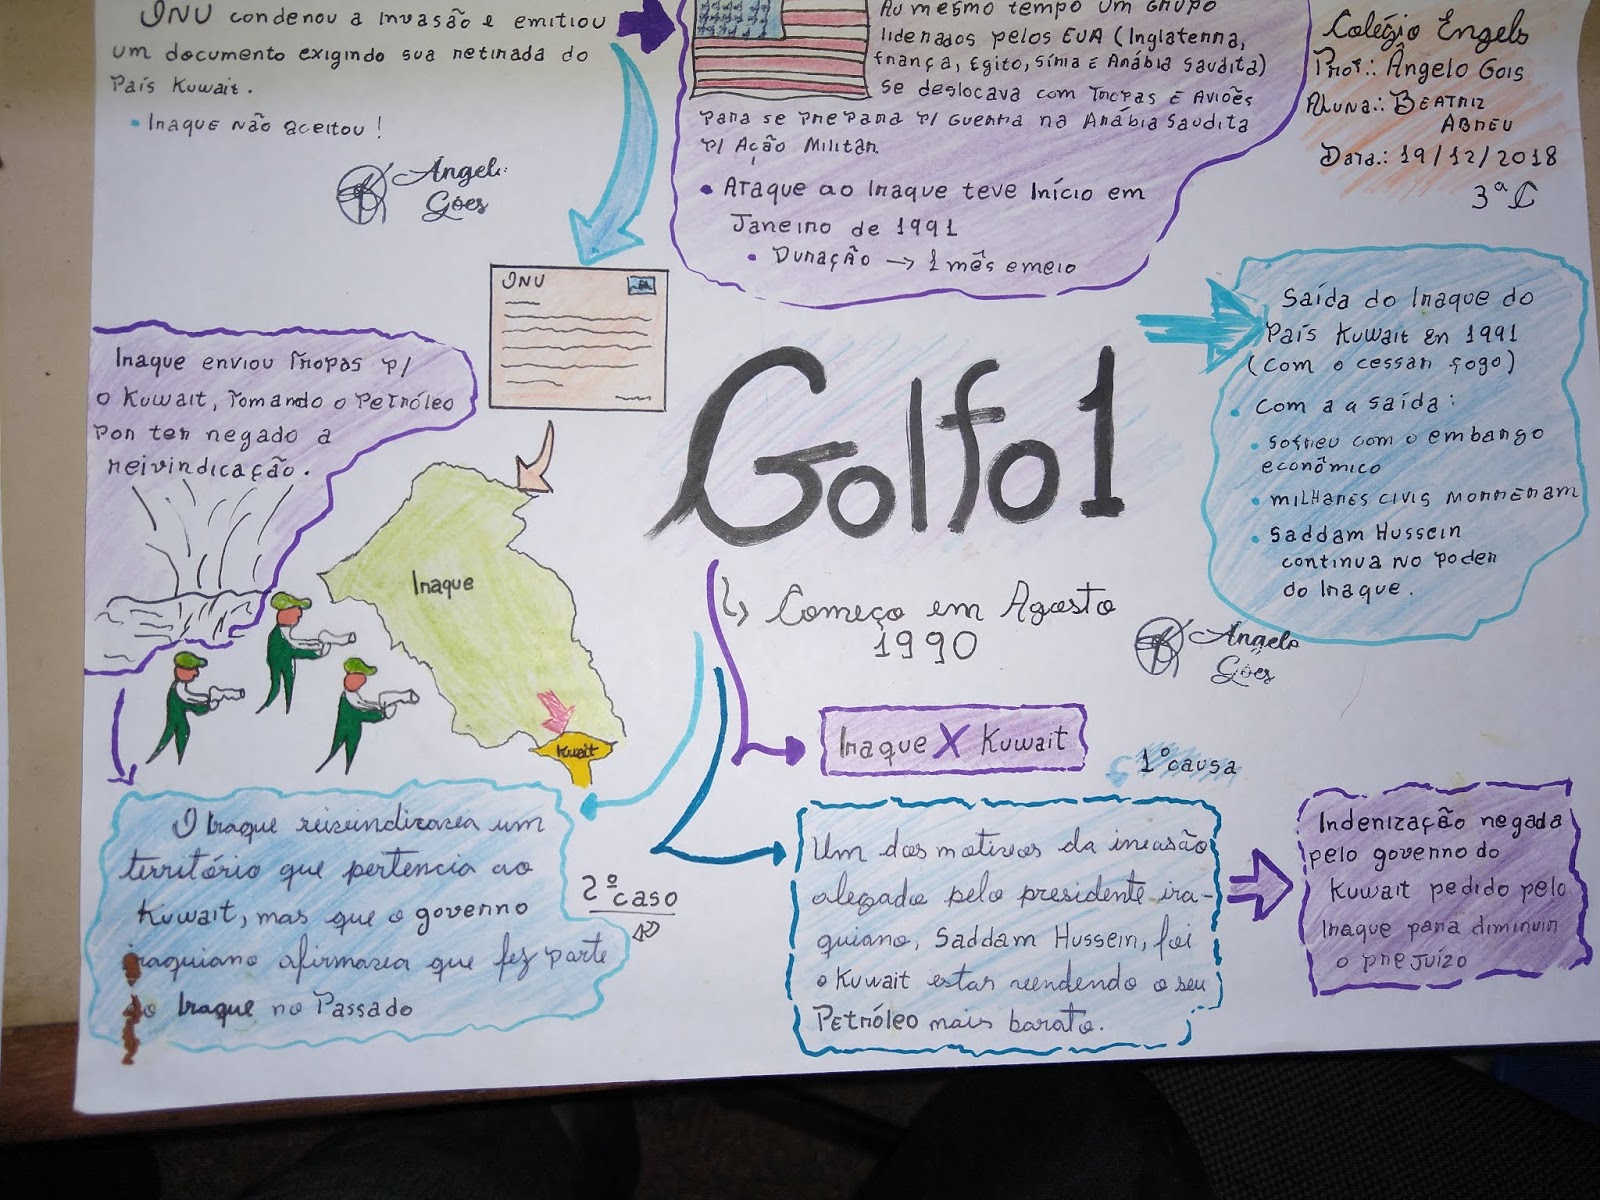 ONU condenou a invasão e emitiu
um documento exigindo sua retirada do
País Kuwait.
• Iraque não aceitou!
Angelo
Góes
Ao mesmo tempo um Grupo
liderados pelos EUA (Inglaterra,
frança, Egito, Síria E Arábia Saudita)
se deslocava com Tropas E Aviões
para se prepara p/ Guerra na Arábia Saudita
p/ Ação Militar.
• Ataque ao Iraque teve Início em
Janeiro de 1991
• Duração → 1 mês e meio
Colégio Engels
Prof.: Ângelo Gois
Aluna.: Beatriz
Abreu
Data.: 19/12/2018
3ª C
ONU
Iraque enviou Tropas p/
o Kuwait, Tomando o Petróleo
por ter negado a
reivindicação.
Golfo 1
Saída do Iraque do
País Kuwait En 1991
(com o cessar fogo)
• Com a a saída:
• sofreu com o embargo
econômico
• milhares civis morreram
• Saddam Hussein
continua no poder
do Iraque.
Iraque
Kuwait
↳ Começo em Agosto
1990
Angelo
Góes
Iraque X Kuwait
1º causa
O Iraque reivindicava um
território que pertencia ao
Kuwait, mas que o governo
iraquiano afirmava que fez parte
do Iraque no Passado
2º caso
Um dos motivos da invasão
alegado pelo presidente ira-
quiano, Saddam Hussein, foi
o Kuwait estar vendendo o seu
Petróleo mais barato.
Indenização negada
pelo governo do
Kuwait pedido pelo
Iraque para diminuir
o prejuízo